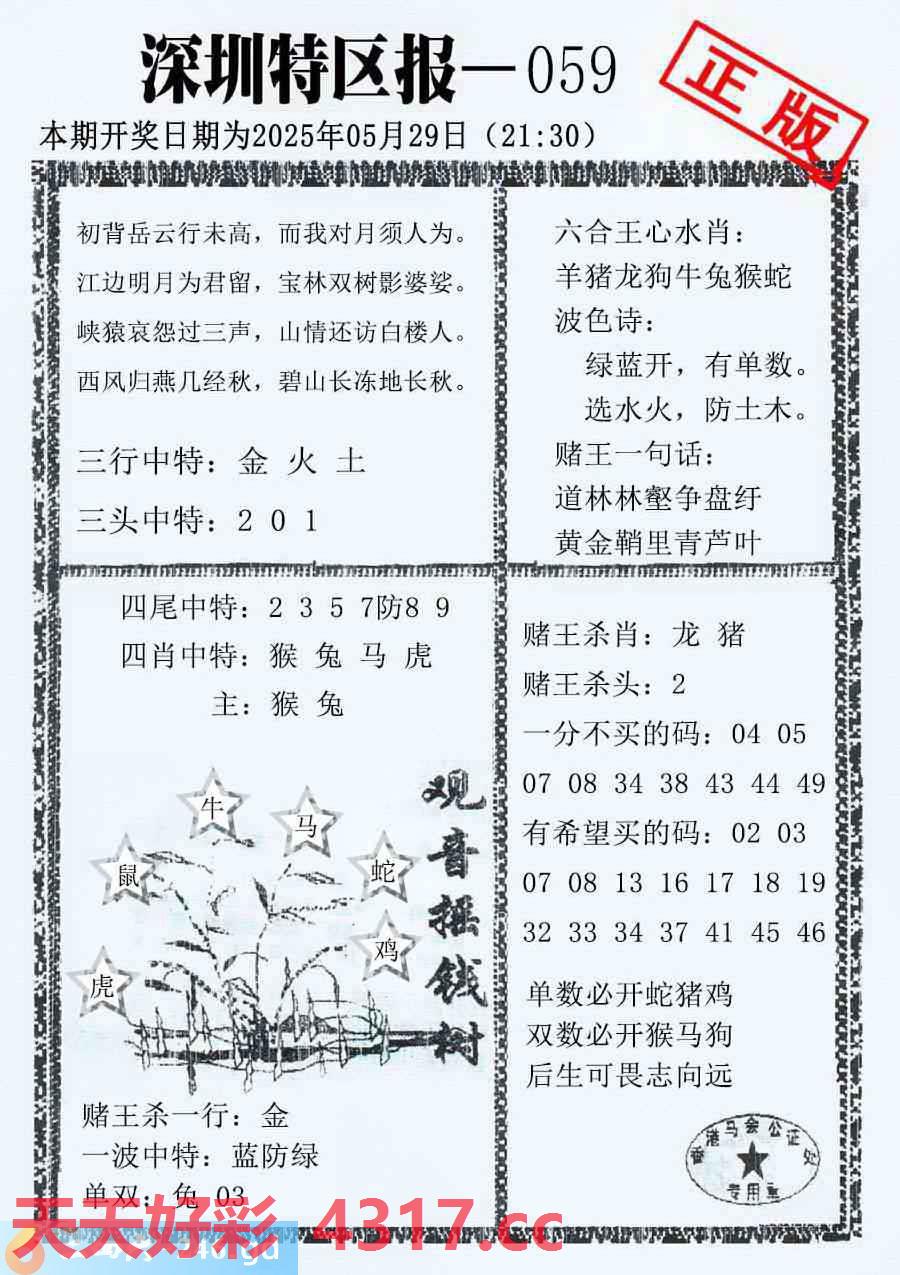 深圳特区报—059
正版
本期开奖日期为2025年05月29日（21:30）
初背岳云行未高，而我对月须人为。
江边明月为君留，宝林双树影婆娑。
峡猿哀怨过三声，山情还访白楼人。
西风归燕几经秋，碧山长冻地长秋。
三行中特：金 火 土
三头中特：2 0 1
六合王心水肖：
羊猪龙狗牛兔猴蛇
波色诗：
绿蓝开，有单数。
选水火，防土木。
赌王一句话：
道林林壑争盘纡
黄金鞘里青芦叶
四尾中特：2 3 5 7防8 9
四肖中特：猴 兔 马 虎
主：猴 兔
牛
马
鼠
蛇
鸡
虎
观音摇钱树
赌王杀一行：金
一波中特：蓝防绿
单双：兔 03
赌王杀肖：龙 猪
赌王杀头：2
一分不买的码：04 05
07 08 34 38 43 44 49
有希望买的码：02 03
07 08 13 16 17 18 19
32 33 34 37 41 45 46
单数必开蛇猪鸡
双数必开猴马狗
后生可畏志向远
香港马会公证处
专用章
天天好彩 4317.cc